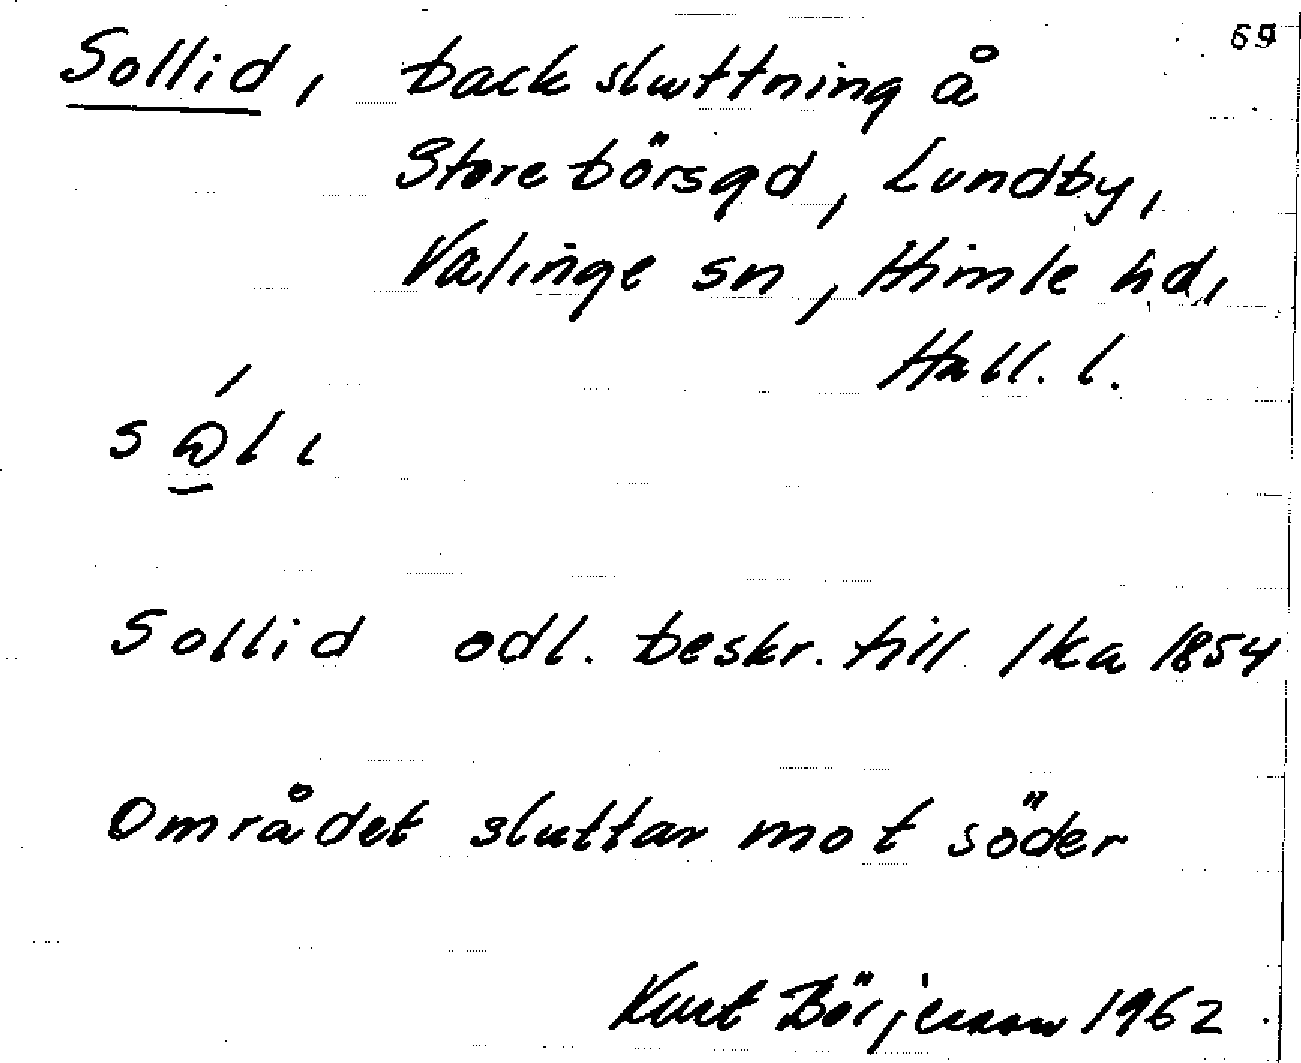 69
Sollid, backsluttning å
Storebörsgd, Lundby,
Valinge sn, Himle hd,
Hall. l.
Sollid odl. beskr. till lka 1854
Området sluttar mot söder
Kurt Börjesson 1962